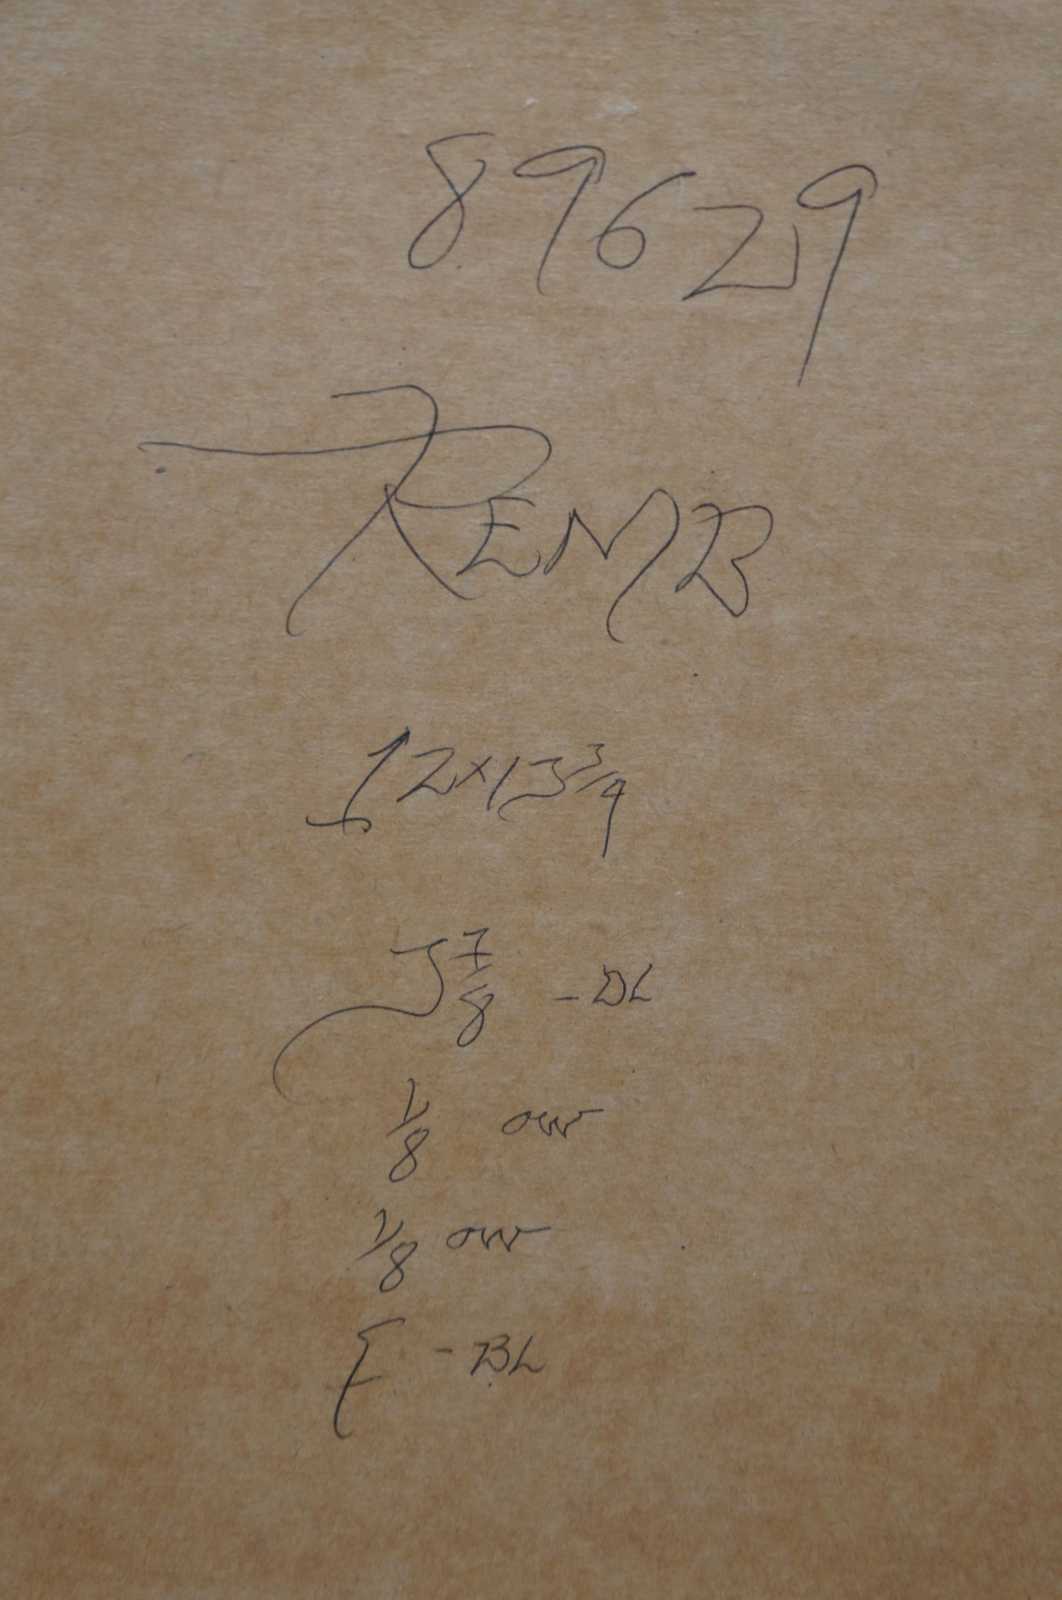 89629
REMB
12x13 3/4
J 7/8 - BL
1/8 ow
1/8 ow
F - BL